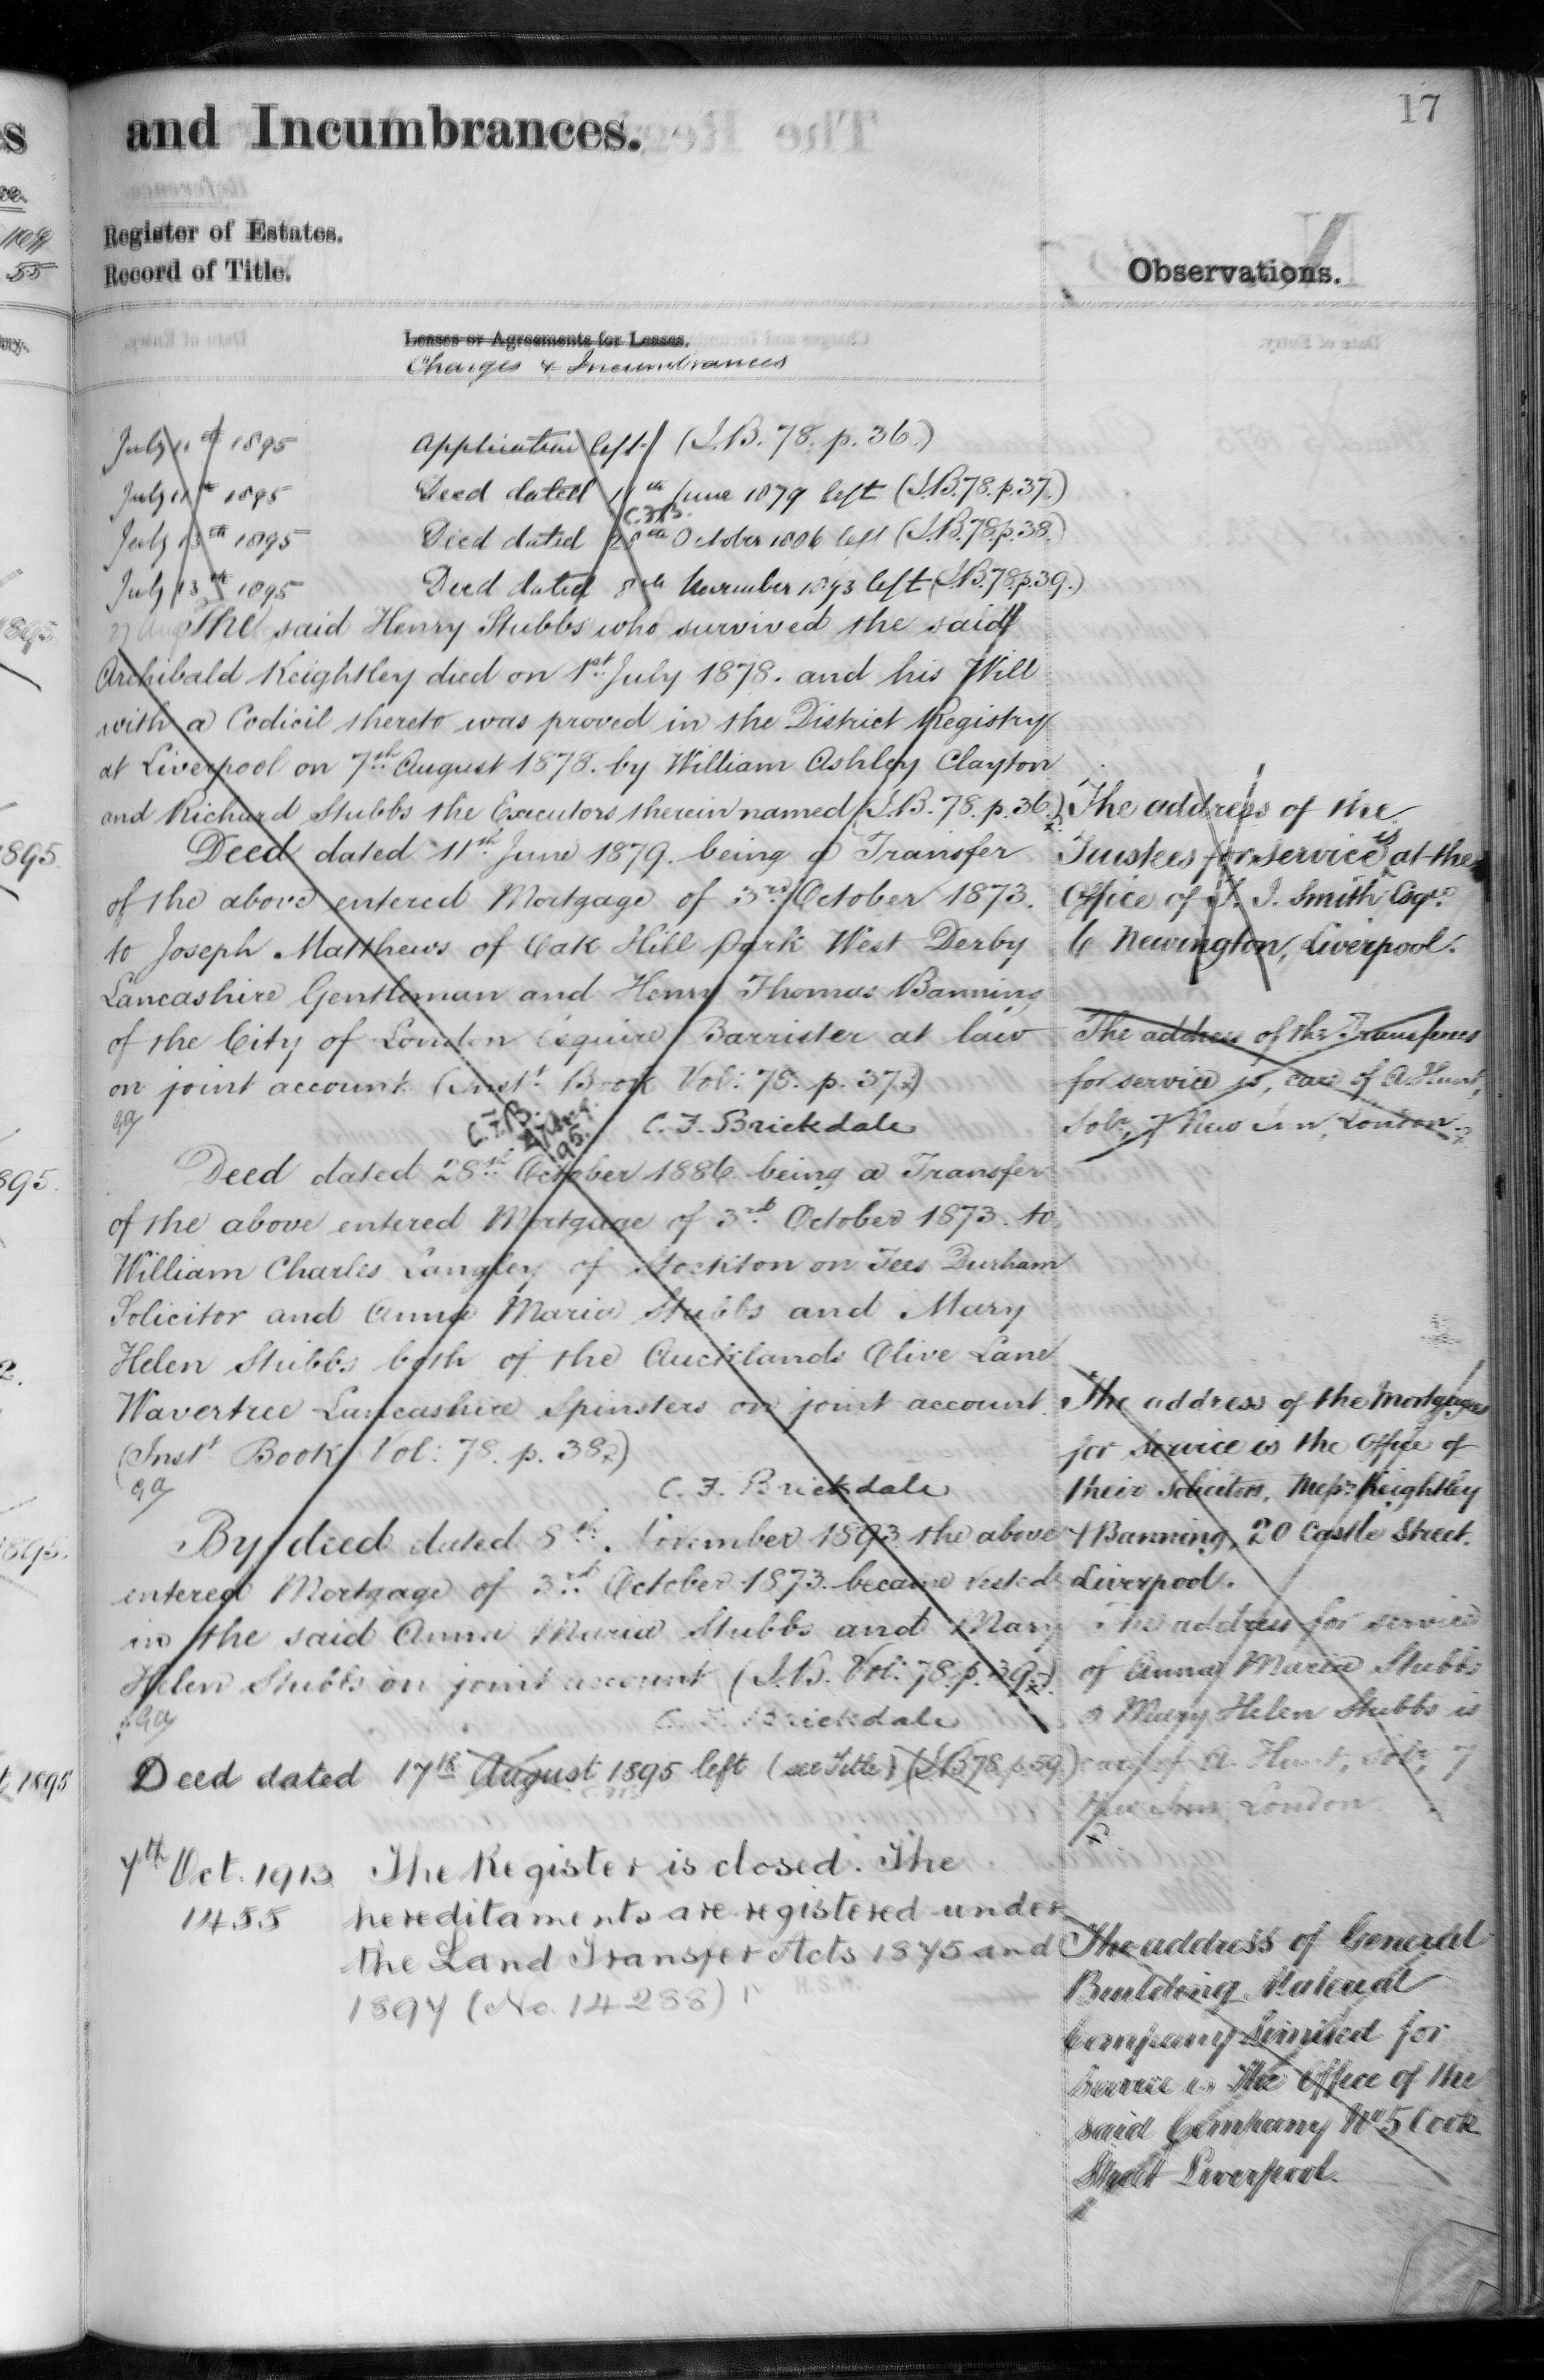 17
and Incumbrances.
Register of Estates.
Record of Title.
Observations.
Leases or Agreements for Leases.
Charges & Incumbrances
July 11th 1895 Application left (I.B. 78. p. 36.)
July 11th 1895 Deed dated 11th June 1879 left (I.B. 78. p. 37.)
C.F.B.
July 13th 1895 Deed dated 28th October 1886 left (I.B. 78 p. 38.)
July 13th 1895 Deed dated 8th November 1893 left (I.B. 78. p. 39.)
The said Henry Stubbs who survived the said
Archibald Keightley died on 1st July 1878. and his Will
with a Codicil thereto was proved in the District Registry
at Liverpool on 7th August 1878. by William Ashley Clayton
and Richard Stubbs the Executors therein named (I.B. 78. p. 36.)
Deed dated 11th June 1879. being a Transfer
of the above entered Mortgage of 3rd October 1873.
to Joseph Matthews of Oak Hill Park West Derby
Lancashire Gentleman and Henry Thomas Banning
of the City of London Esquire Barrister at law
on joint account (Inst. Book Vol: 78. p. 37.)
C.F.B.
95.
C. F. Brickdale
Deed dated 28th October 1886. being a Transfer
of the above entered Mortgage of 3rd October 1873. to
William Charles Langley of Stockton on Tees Durham
Solicitor and Anna Maria Stubbs and Mary
Helen Stubbs both of the Aucklands Olive Lane
Wavertree Lancashire Spinsters on joint account.
(Inst. Book Vol: 78. p. 38.)
C. F. Brickdale
By deed dated 8th November 1893. the above
entered Mortgage of 3rd October 1873. became vested
in the said Anna Maria Stubbs and Mary
Helen Stubbs on joint account (I.B. Vol: 78. p. 39.)
C. F. Brickdale
Deed dated 17th August 1895 left (see Title) (I.B 78 p. 59.)
7th Oct. 1913 The Register is closed. The
1455 hereditaments are registered under
the Land Transfer Acts 1875 and
1897 (No. 14288)
H.S.W.
The address of the
Trustees for service is at the
Office of T. J. Smith Esqre
6 Newington, Liverpool.
The address of the Transferees
for service is, care of A. Hunt,
Solr, 7 New Inn, London.
The address of the Mortgagees
for service is the Office of
their Solicitors, Messrs Keightley
& Banning, 20 Castle Street.
Liverpool.
The address for service
of Anna Maria Stubbs
& Mary Helen Stubbs is
care of A. Hunt, Solr, 7
New Inn London.
The address of General
Building Material
Company Limited for
Service is The Office of the
said Company No 5 Cook
Street Liverpool.